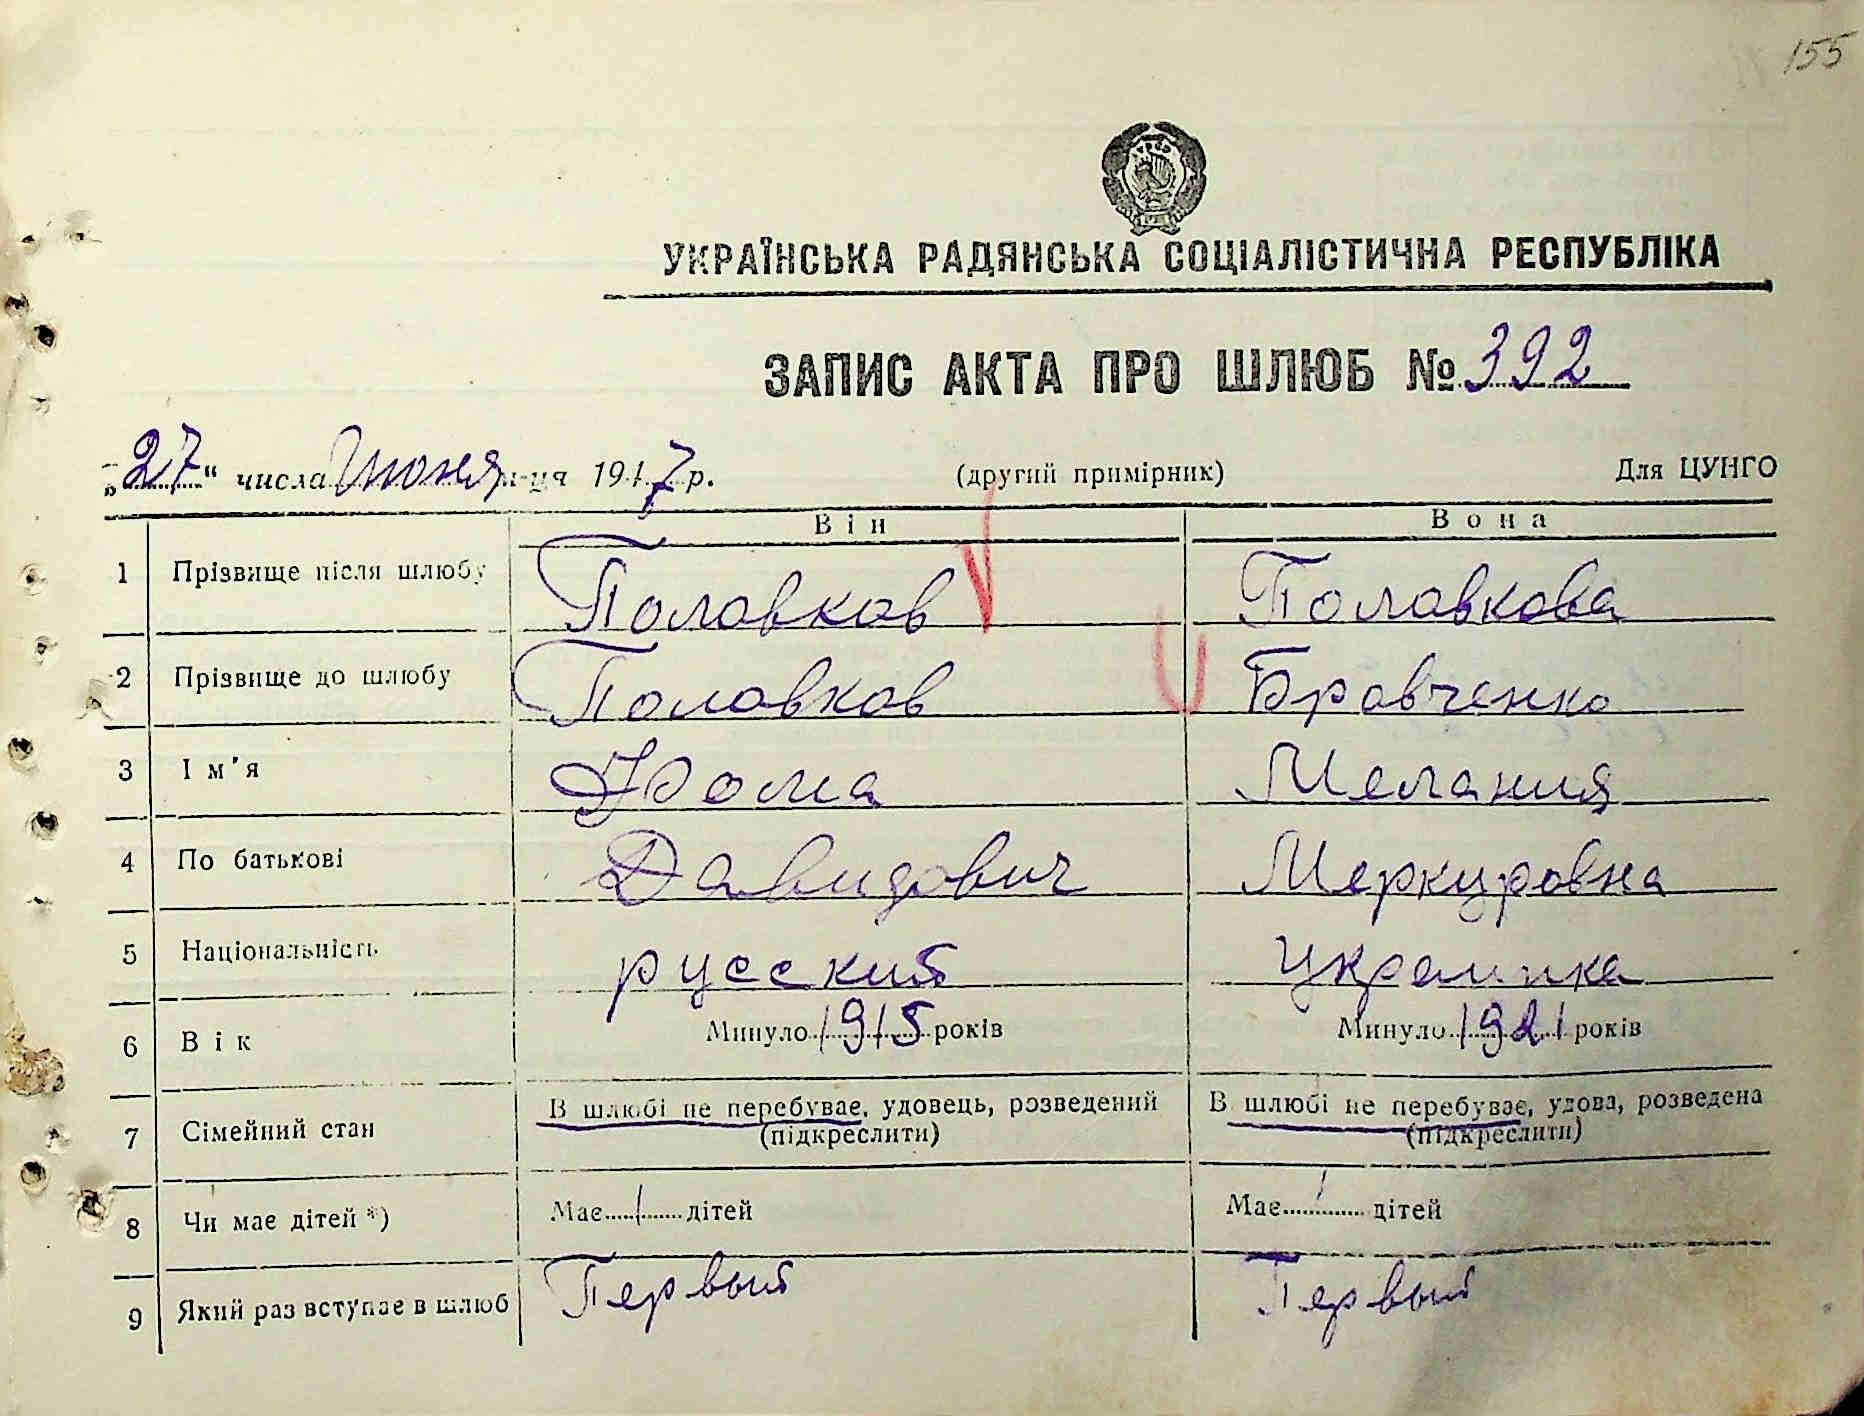 155
УКРАЇНСЬКА РАДЯНСЬКА СОЦІАЛІСТИЧНА РЕСПУБЛІКА
ЗАПИС АКТА ПРО ШЛЮБ № 392
„27“ числа Июня м-ця 1947 р. (другий примірник) Для ЦУНГО
Він Вона
1 Прізвище після шлюбу Половков Половкова
2 Прізвище до шлюбу Половков Бровченко
3 Ім'я Фома Мелания
4 По батькові Давидович Меркуровна
5 Національність русский украинка
6 Вік Минуло 1915 років Минуло 1921 років
7 Сімейний стан В шлюбі не перебуває, удовець, розведений (підкреслити) В шлюбі не перебуває, удова, розведена (підкреслити)
8 Чи має дітей *) Має 1 дітей Має 1 дітей
9 Який раз вступає в шлюб Первый Первый